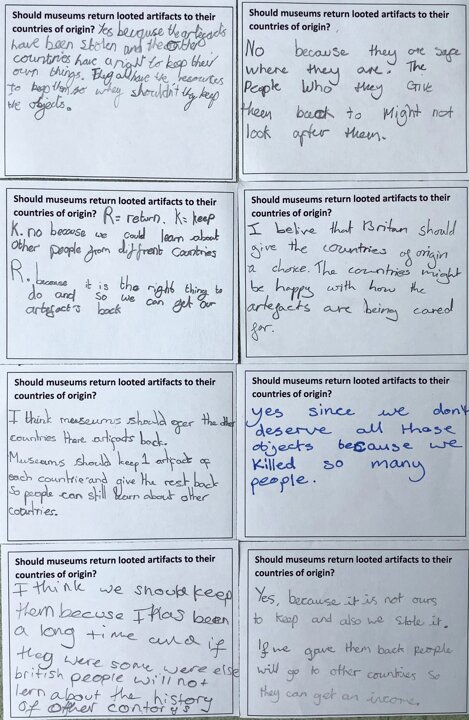 Should museums return looted artifacts to their
countries of origin? Yes because the artefacts
have been stolen and the other
countries have a right to keep their
own things. They all have the resources
to keep them so why shouldn't they keep
the objects.
Should museums return looted artifacts to their
countries of origin?
No because they are safe
where they are. The
People who they give
them back to Might not
look after them.
Should museums return looted artifacts to their
countries of origin? R = return. K = keep
K. no because we could learn about
Other people from diffrent Contries
R. because it is the right thing to
do and so we can get our
artefact's back
Should museums return looted artifacts to their
countries of origin?
I belive that Britan should
give the countries of origin
a choice. The countries might
be happy with how the
artefacts are being cared
for.
Should museums return looted artifacts to their
countries of origin?
I think museums should the other
countries there artifacts back.
Museums should keep 1 artifact of
each countrie and give the rest back
So people can still learn about other
countries.
Should museums return looted artifacts to their
countries of origin?
yes since we don't
deserve all those
objects because we
killed so many
people.
Should museums return looted artifacts to their
countries of origin?
I think we should keep
them becuse I has been
a long time and if
they were some were else
british people will not
lern about the history
of other contorys
Should museums return looted artifacts to their
countries of origin?
Yes, because it is not ours
to keep and also we stole it.
If we gave them back people
will go to other countries so
they can get an income.